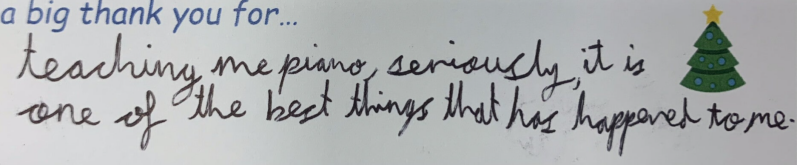 a big thank you for...
teaching me piano, seriously, it is
one of the best things that has happened to me.